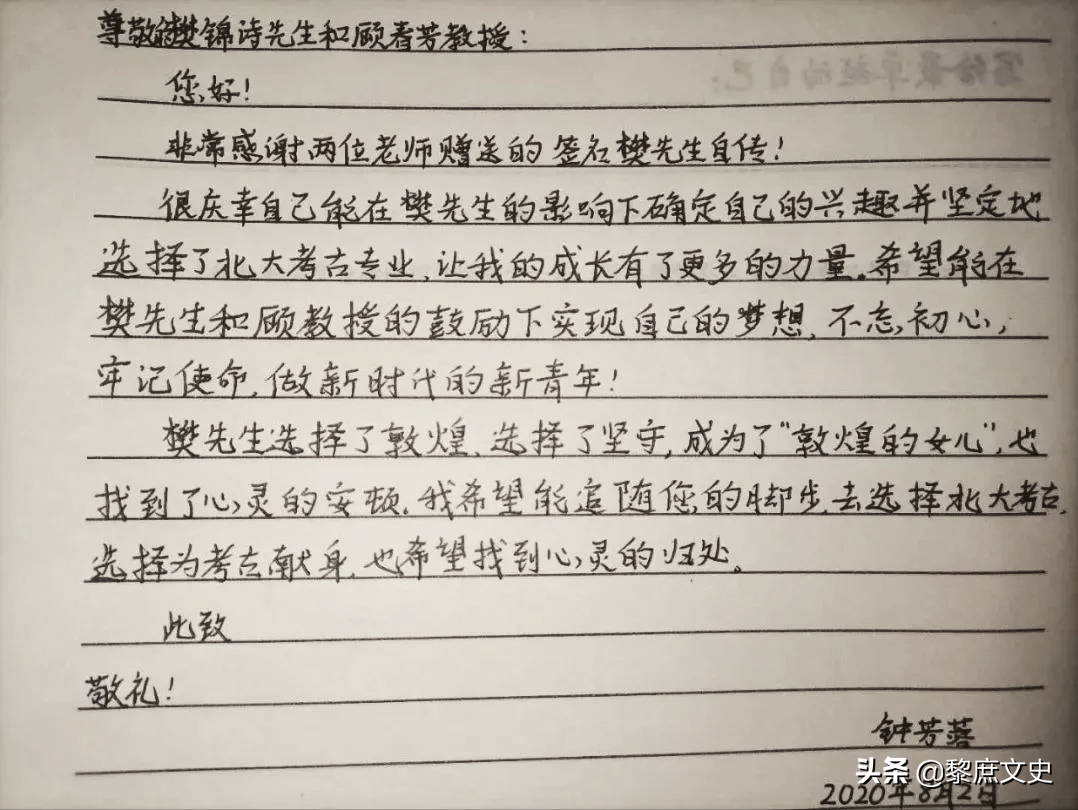 尊敬的樊锦诗先生和顾春芳教授：
您好！
非常感谢两位老师赠送的签名樊先生自传！
很庆幸自己能在樊先生的影响下确定自己的兴趣并坚定地
选择了北大考古专业，让我的成长有了更多的力量。希望能在
樊先生和顾教授的鼓励下实现自己的梦想，不忘初心，
牢记使命，做新时代的新青年！
樊先生选择了敦煌，选择了坚守，成为了“敦煌的女儿”，也
找到了心灵的安顿。我希望能追随您的脚步，去选择北大考古，
选择为考古献身，也希望找到心灵的归处。
此致
敬礼！
钟芳蓉
头条 @黎庶文史
2020年8月2日